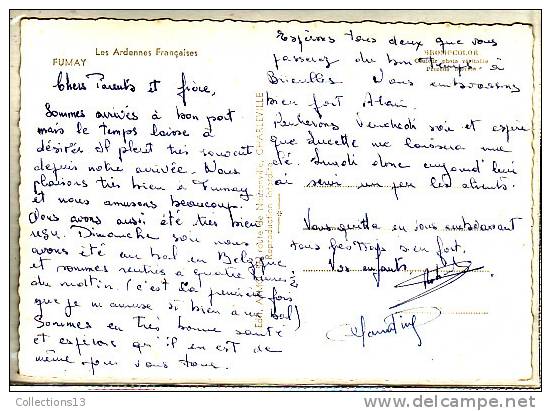 Les Ardennes Françaises
FUMAY
Chers Parents et frère,
Sommes arrivés à bon port
mais le temps laisse à
désirer il pleut très souvent
depuis notre arrivée. Nous
plaisons très bien à Fumay
et nous amusons beaucoup.
Nous avons aussi été très bien
reçu. Dimanche soir nous
avons été au bal en Belgique
et sommes rentrés à quatre heures
du matin (c'est la première fois
que je m'amuse si bien à un bal)
Sommes en très bonne santé
et espérons qu'il en est de
même pour vous tous.
CHARLEVILLE
Reproduction interdite
Espérons tous deux que vous
passerez du bon temps à
Bruxelles Vous embrasserons
bien fort Alain.
Rentrerons Vendredi soir et espère
que Lucette me laissera
Lundi donc aujourd'hui
ai servi un peu les clients.
Vous quitte en vous embrassant
tous bien fort.
Vos enfants,
Collections13
www.delcampe.net